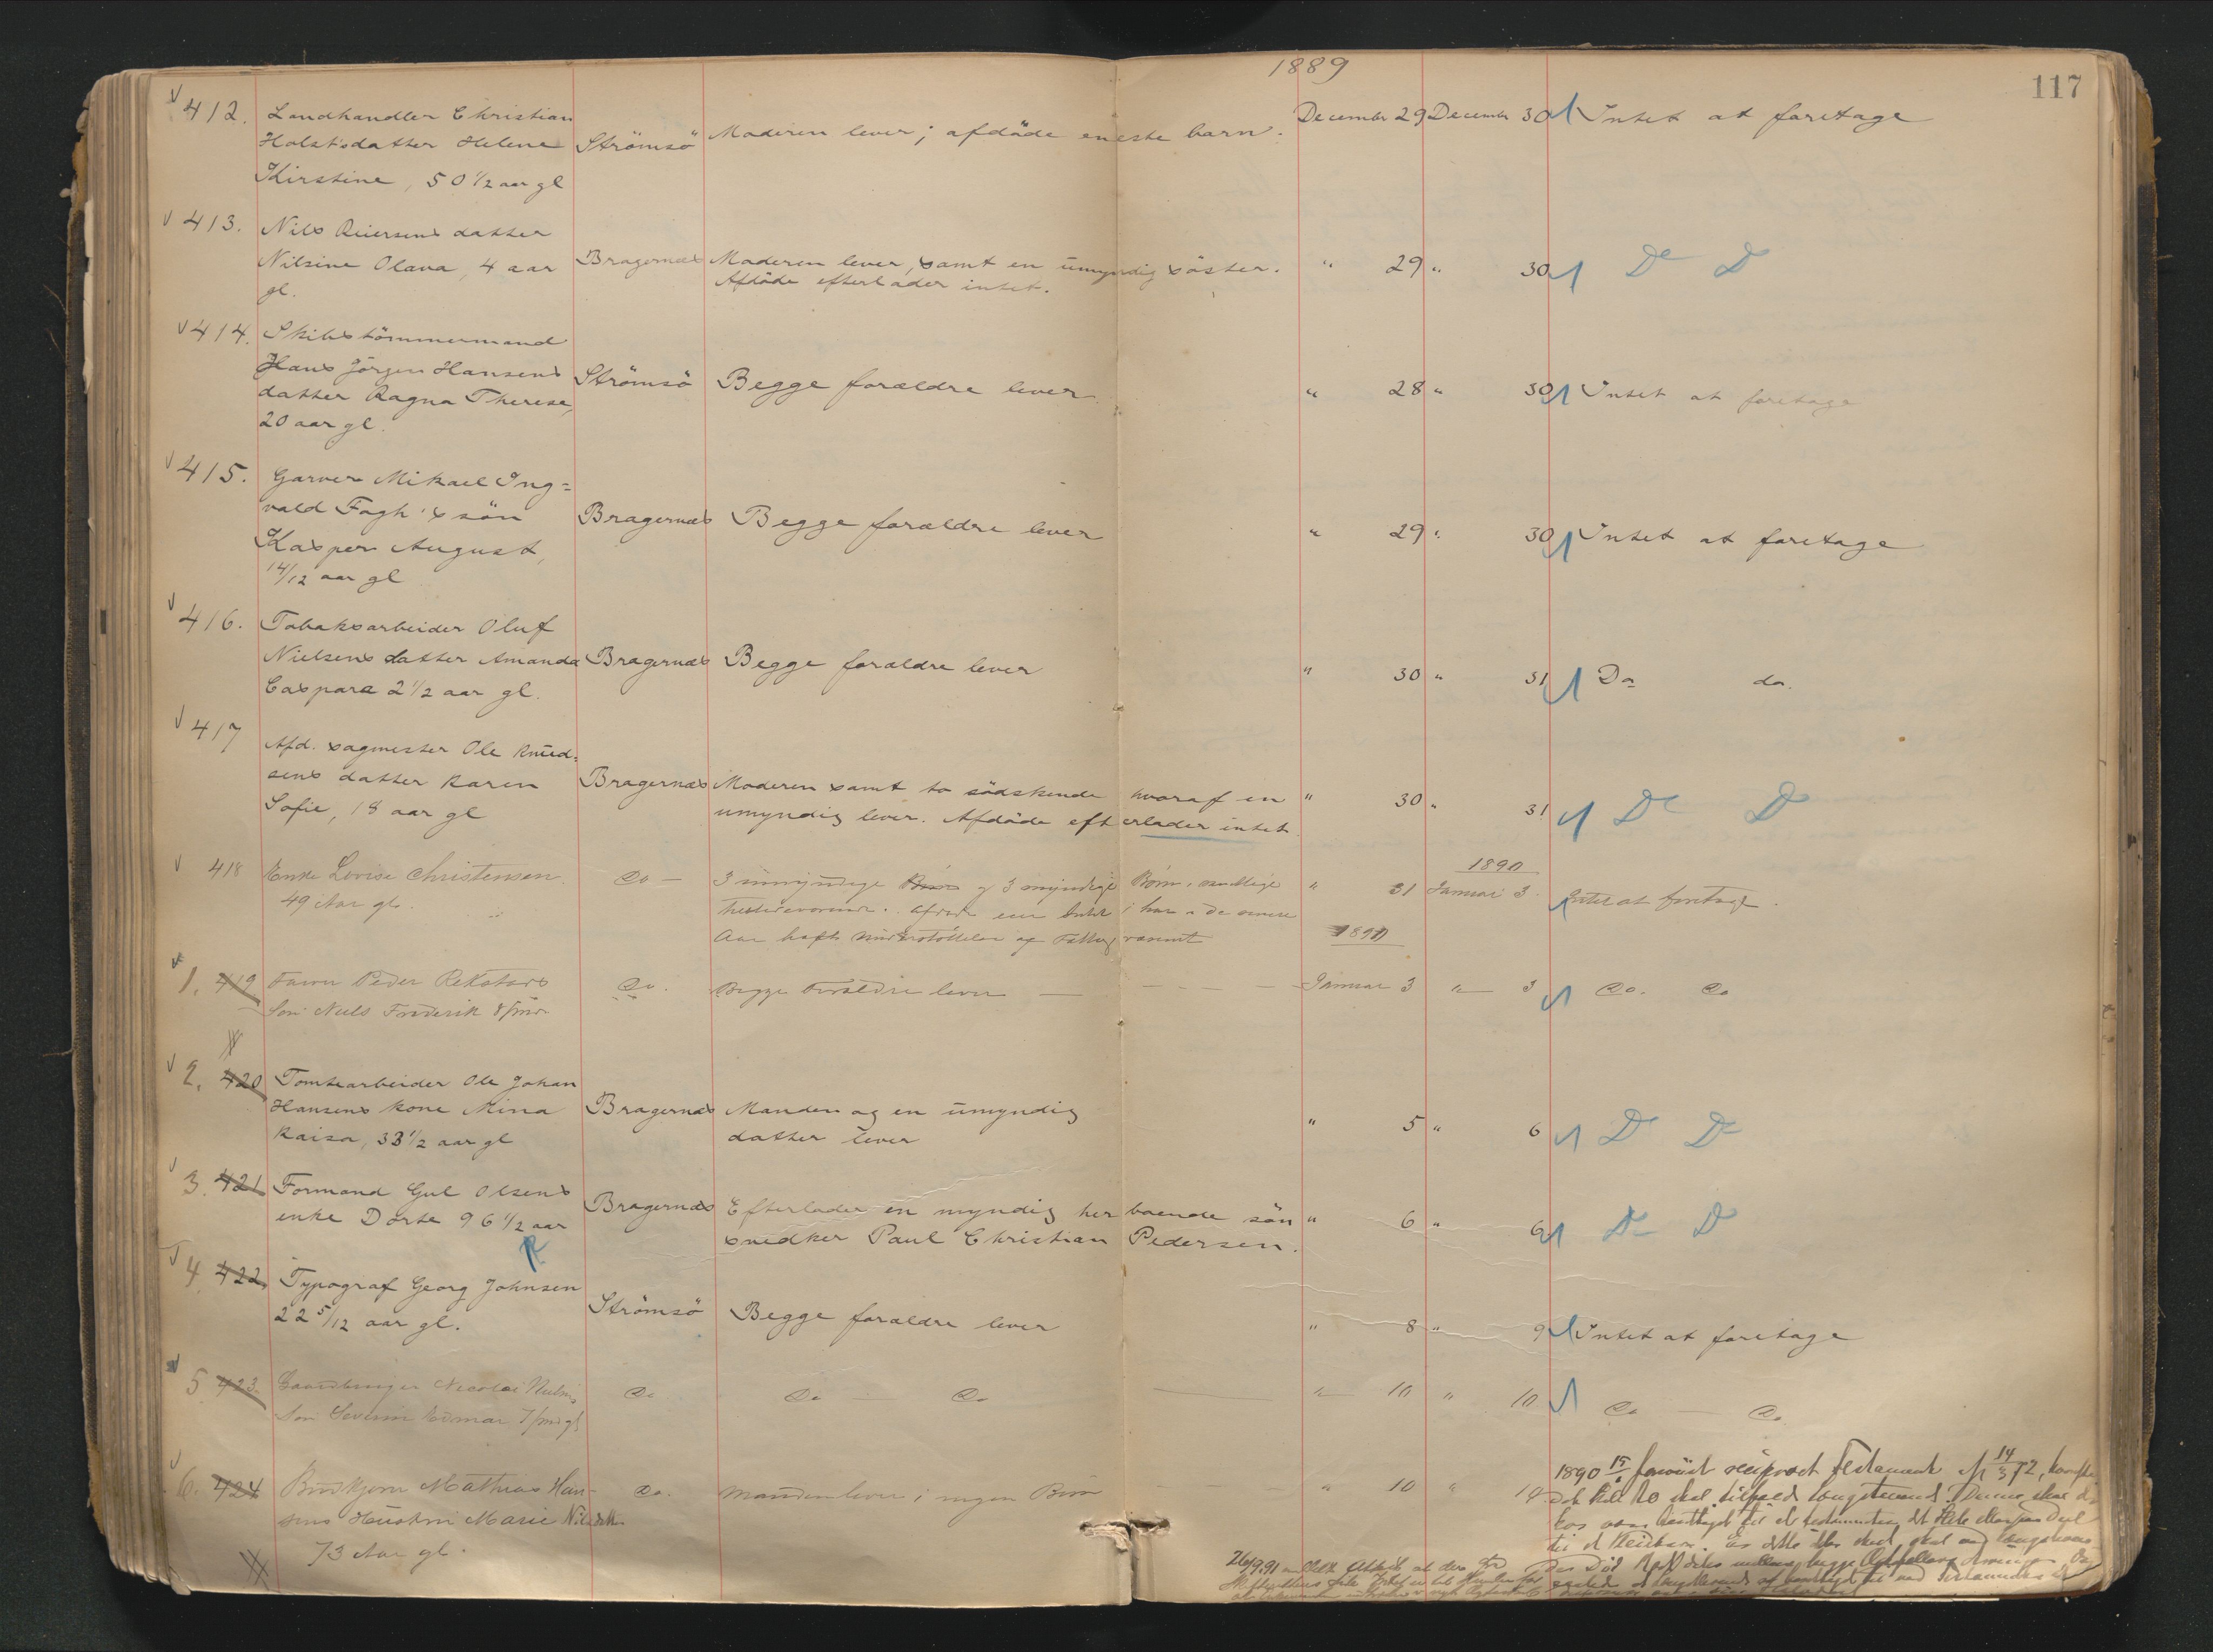 1889
117
412. Landhandler Christian
Holst'sdatter Helene
Kirstine, 50 1/2 aar gl
Strömsö
Moderen lever; afdöde eneste barn.
December 29 December 30 Intet at foretage
413. Nils Reiersens datter
Nilsine Olava, 4 aar
gl.
Bragernæs
Moderen lever, samt en umyndig söster.
Afdöde efterlader intet.
" 29 " 30 Do Do
414. Skibstömmermand
Hans Jörgen Hansens
datter Ragna Therese,
20 aar gl.
Strömsö
Begge forældre lever
" 28 " 30 Intet at foretage
415. Garver Mikael Ing=
vald Fagh's sön
Kasper August,
14/12 aar gl
Bragernæs
Begge forældre lever
" 29 " 30 Intet at foretage
416. Tobaksarbeider Oluf
Nielsens datter Amanda
Caspara 2 1/2 aar gl.
Bragernæs
Begge forældre lever
" 30 " 31 Do do.
417 Afd. sagmester Ole Knud=
sens datter Karen
Sofie, 18 aar gl
Bragernæs
Moderen samt to södskende hvoraf en
umyndig lever. Afdöde efterlader intet.
" 30 " 31 Do Do
418 Enke Lovise Christensen.
49 Aar gl.
Do —
3 umyndige Börn og 3 myndige Börn, samtlige
tilstedeværende. Afdöde eier Intet i har i de senere
Aar havt understöttelse af Fattigvæsenet
" 31
1890
Januar 3. Intet at foretage.
1890
1. 419 Farver Peder Rekstads
Sön Niels Frederik 8/mdr
Do.
Begge Forældre lever —
Januar 3 " 3 Do. Do
2. 420 Tomtearbeider Ole Johan
Hansens kone Mina
Kaisa, 33 1/2 aar gl
Bragernæs
Manden og en umyndig
datter lever
" 5 " 6 Do Do
3. 421 Formand Gul Olsens
enke Dorte 96 1/2 aar
Bragernæs
Efterlader en myndig her boende sön
snedker Paul Christian Pedersen.
" 6 " 6 Do Do
4 422 Typograf Georg Johnsen
22 5/12 aar gl.
Strömsö
Begge forældre lever
" 8 " 9 Intet at foretage
5 423. Nicolai Nielsens
Sön Severin 7/md gl
Do
Do — Do
" 10 " 10 Do — Do.
6. 424 Mathias Han-
sens Hustru Marie Nilsdatter
73 Aar gl.
Do.
Manden lever; ingen Börn
" 10 " 10
1890 15/ forevist reciprokt Testament af 14/3 72,
26/9.91